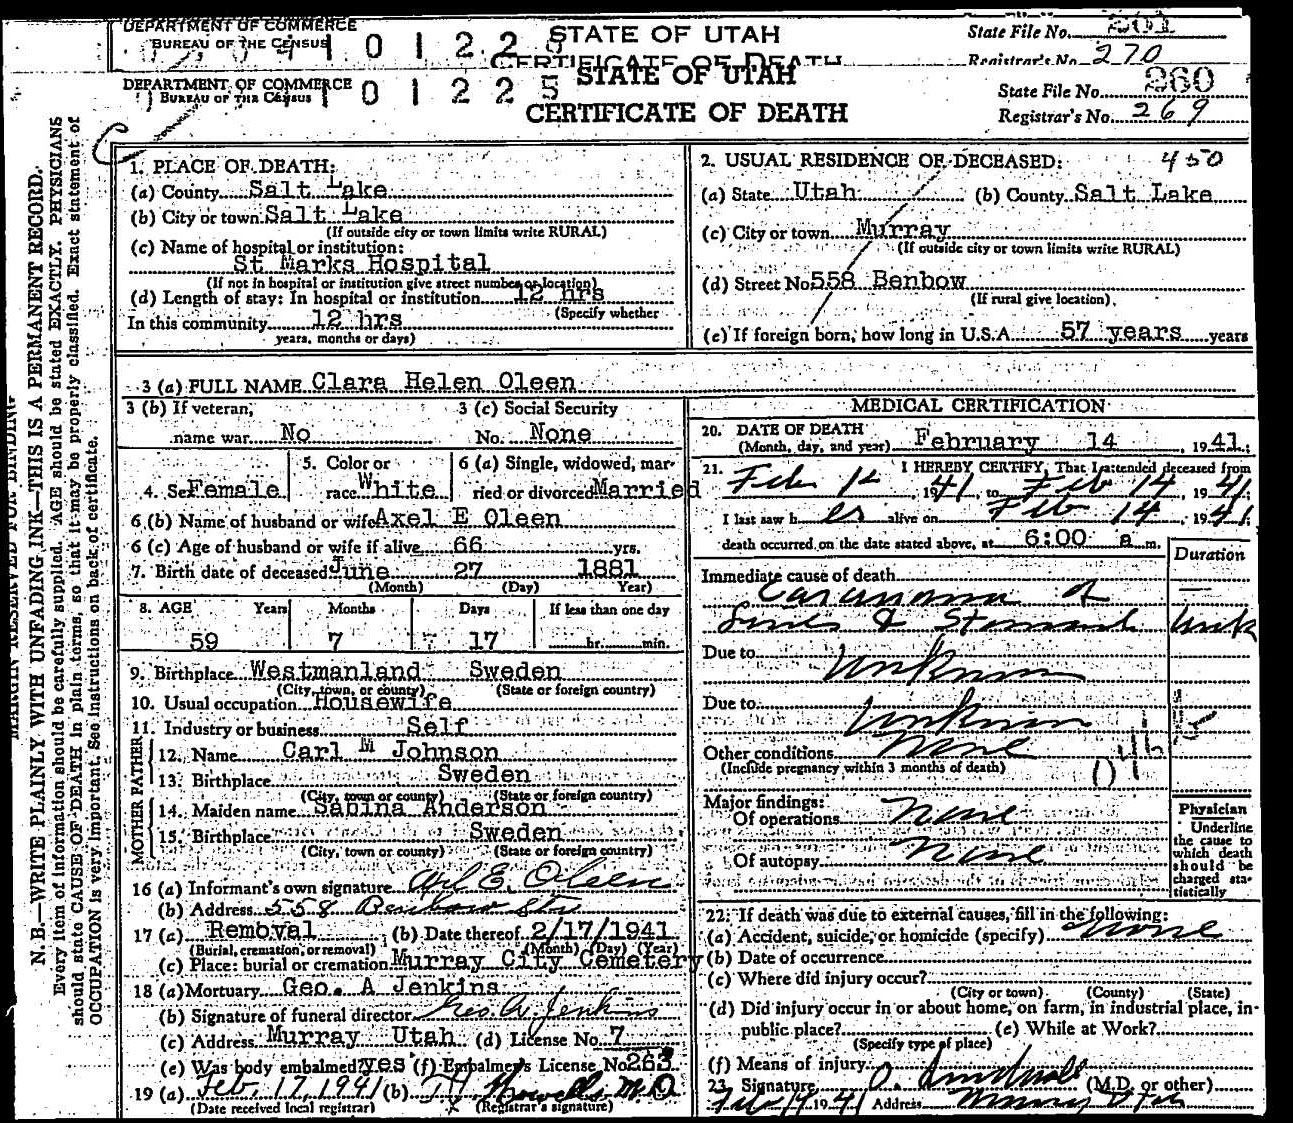 DEPARTMENT OF COMMERCE
BUREAU OF THE CENSUS
STATE OF UTAH
CERTIFICATE OF DEATH
State File No. 261
Registrar's No. 270
DEPARTMENT OF COMMERCE
BUREAU OF THE CENSUS
0 1 2 2 5
STATE OF UTAH
CERTIFICATE OF DEATH
State File No. 260
Registrar's No. 269
MARGIN RESERVED FOR BINDING
N. B.—WRITE PLAINLY WITH UNFADING INK—THIS IS A PERMANENT RECORD.
Every item of information should be carefully supplied. AGE should be stated EXACTLY. PHYSICIANS
should state CAUSE OF DEATH in plain terms, so that it may be properly classified. Exact statement of
OCCUPATION is very important. See instructions on back of certificate.
1. PLACE OF DEATH:
(a) County Salt Lake
(b) City or town Salt Lake
(If outside city or town limits write RURAL)
(c) Name of hospital or institution:
St Marks Hospital
(If not in hospital or institution give street number or location)
(d) Length of stay: In hospital or institution 12 hrs
(Specify whether
In this community 12 hrs
years, months or days)
2. USUAL RESIDENCE OF DECEASED: 450
(a) State Utah (b) County Salt Lake
(c) City or town Murray
(If outside city or town limits write RURAL)
(d) Street No 558 Benbow
(If rural give location)
(e) If foreign born, how long in U.S.A. 57 years years
3 (a) FULL NAME Clara Helen Oleen
3 (b) If veteran, 3 (c) Social Security
name war No No. None
4. Sex Female 5. Color or race White 6 (a) Single, widowed, married or divorced Married
6 (b) Name of husband or wife Axel E Oleen
6 (c) Age of husband or wife if alive 66 yrs.
7. Birth date of deceased June 27 1881
(Month) (Day) Year)
8. AGE Years Months Days If less than one day
59 7 17 hr. min.
9. Birthplace Westmanland Sweden
(City, town, or county) (State or foreign country)
10. Usual occupation Housewife
11. Industry or business Self
FATHER
12. Name Carl M Johnson
13. Birthplace Sweden
(City, town or county) (State or foreign country)
MOTHER
14. Maiden name Sabina Anderson
15. Birthplace Sweden
(City, town or county) (State or foreign country)
16 (a) Informant's own signature Axl E. Oleen
(b) Address 558 Benbow St
17 (a) Removal (b) Date thereof 2/17/1941
(Burial, cremation, or removal) (Month) (Day) (Year)
(c) Place: burial or cremation Murray City Cemetery
18 (a) Mortuary Geo. A Jenkins
(b) Signature of funeral director Geo. A. Jenkins
(c) Address Murray Utah (d) License No. 7
(e) Was body embalmed? yes (f) Embalmer's License No. 263
19 (a) Feb. 17, 1941 (b) Howells M.D.
(Date received local registrar) (Registrar's signature)
MEDICAL CERTIFICATION
20. DATE OF DEATH
(Month, day, and year) February 14, 1941;
21. I HEREBY CERTIFY, That I attended deceased from
Feb 1941, to Feb 14, 1941;
I last saw her alive on Feb 14, 1941;
death occurred on the date stated above, at 6:00 a m.
Duration
Immediate cause of death
Carcinoma of
& Stomach Unk
Due to Unknown
Due to Unknown
Other conditions None
(Include pregnancy within 3 months of death)
046
Major findings:
Of operations None
Of autopsy None
Physician
Underline
the cause to
which death
should be
charged sta-
tistically
22. If death was due to external causes, fill in the following:
(a) Accident, suicide, or homicide (specify) None
(b) Date of occurrence
(c) Where did injury occur?
(City or town) (County) (State)
(d) Did injury occur in or about home, on farm, in industrial place, in
public place? (e) While at Work?
(Specify type of place)
(f) Means of injury
23. Signature (M.D. or other)
Feb 1941 Address Murray Utah